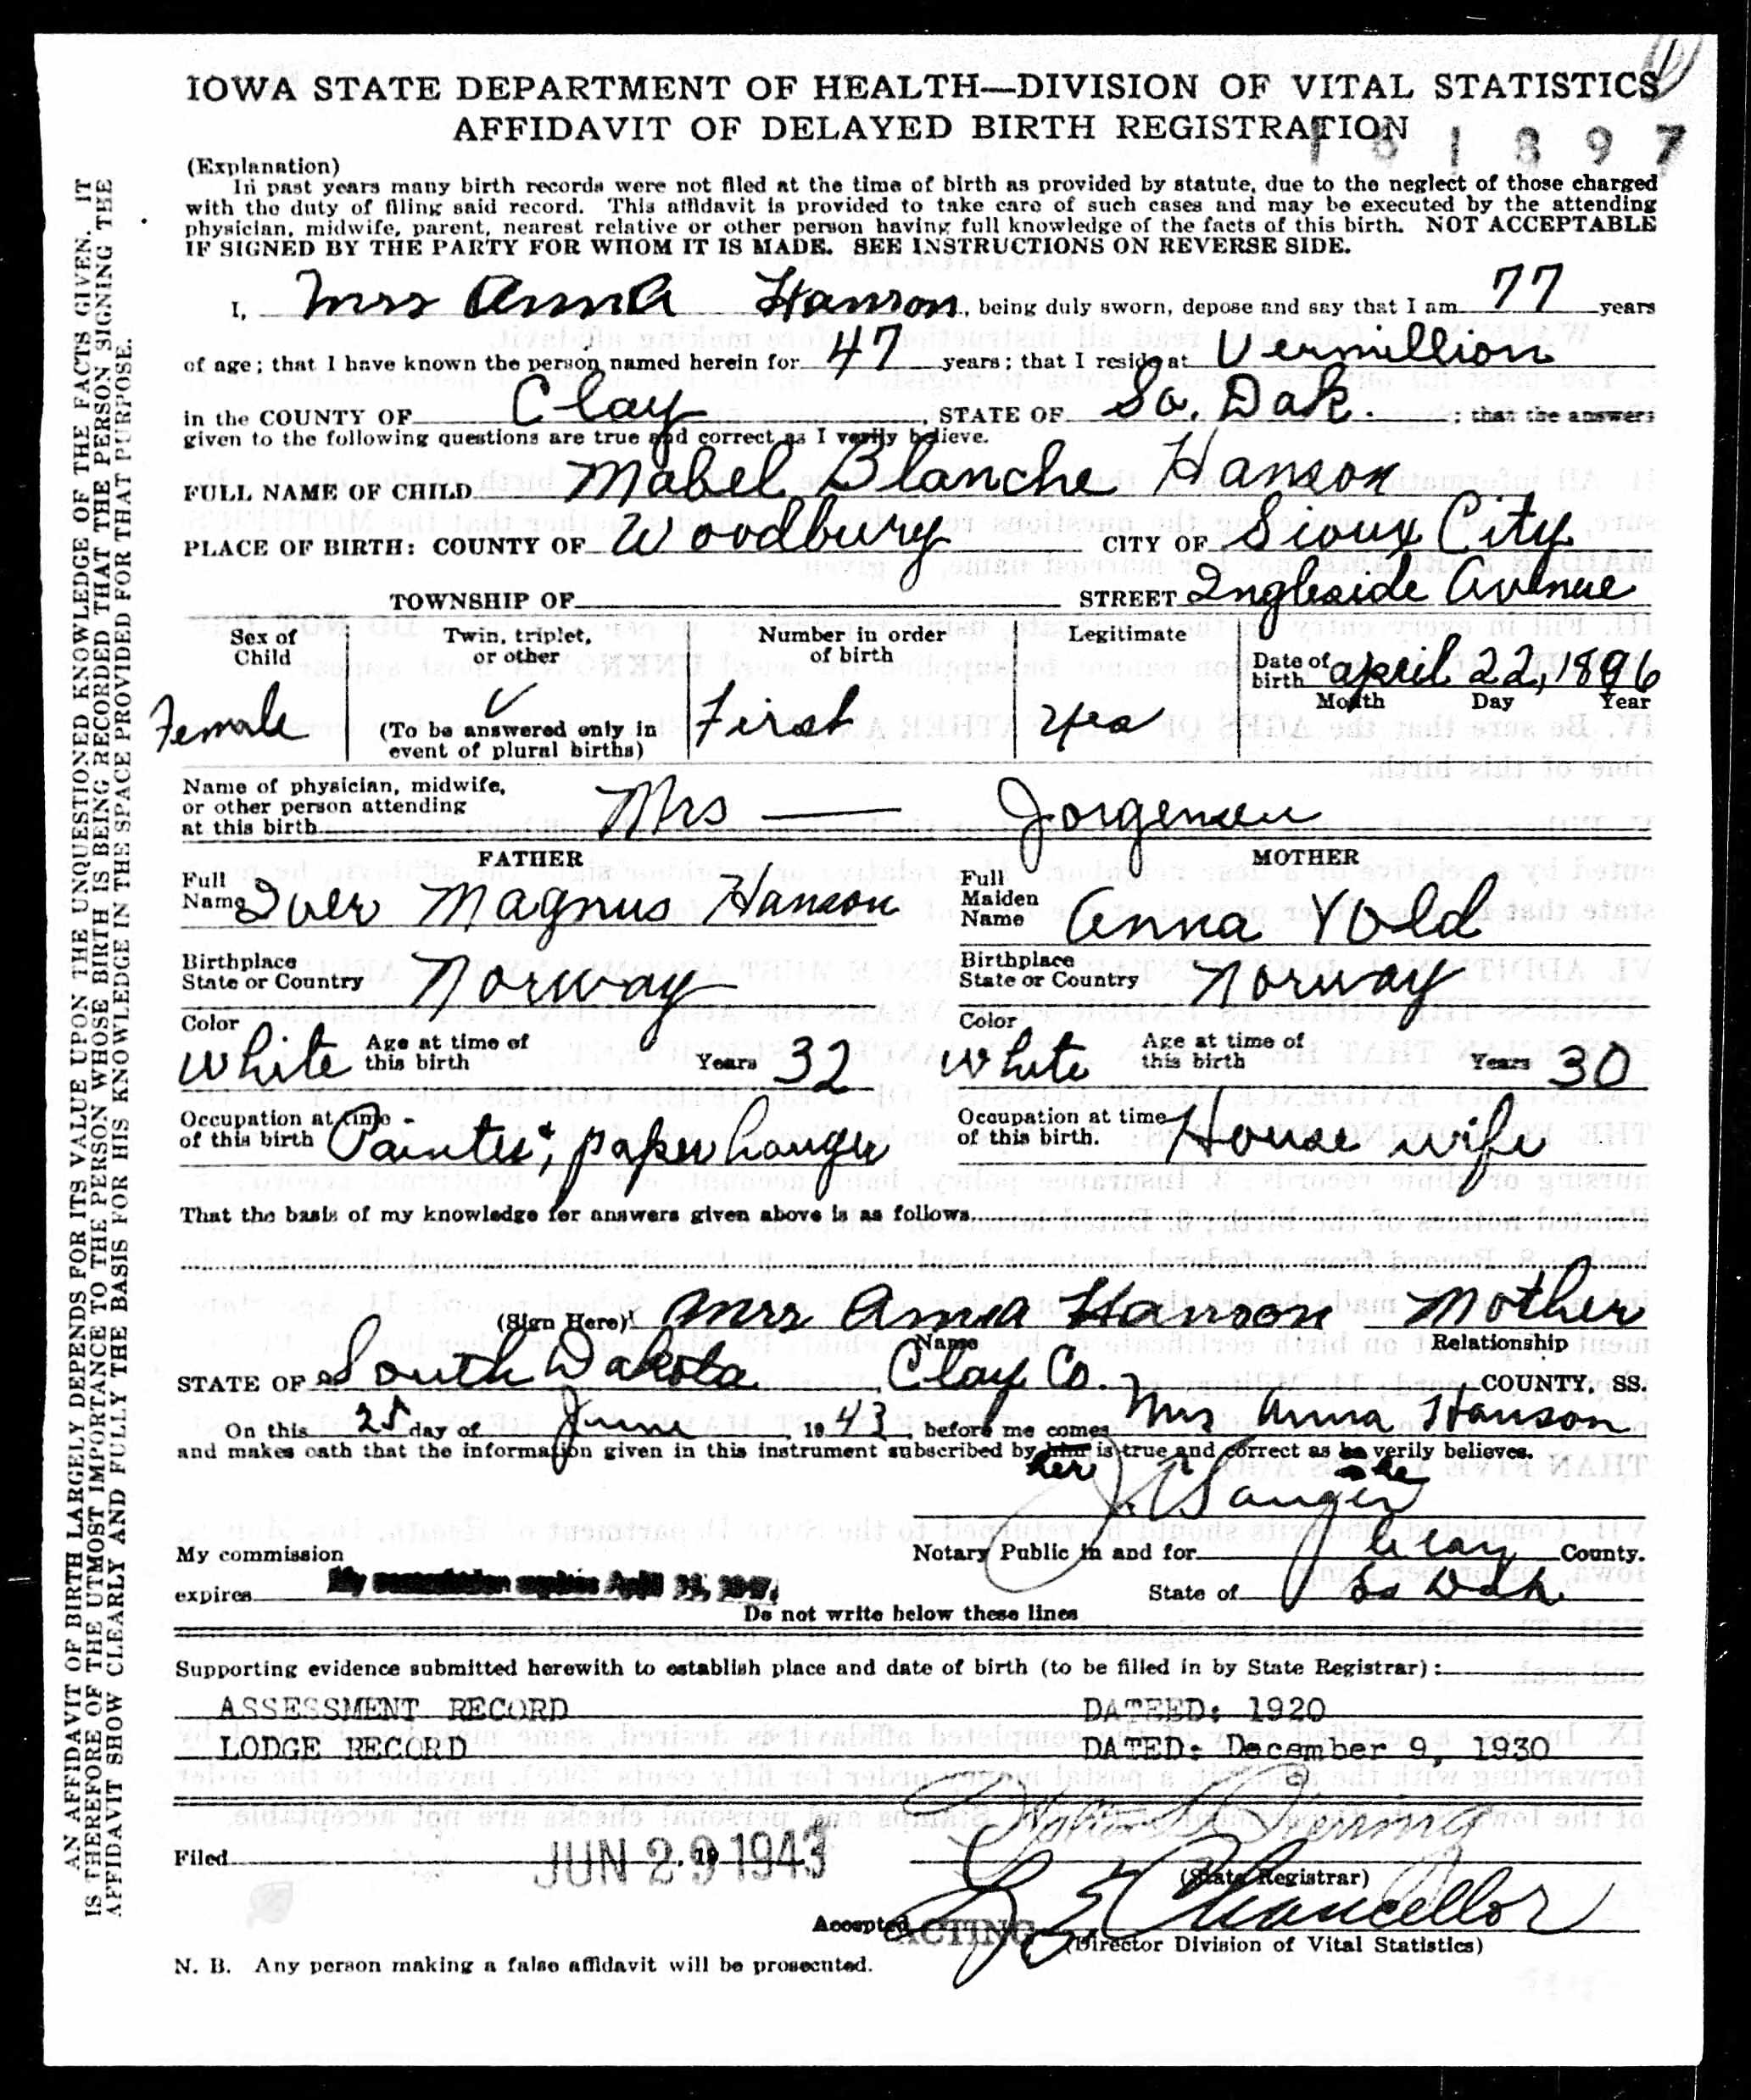 IOWA STATE DEPARTMENT OF HEALTH—DIVISION OF VITAL STATISTICS
AFFIDAVIT OF DELAYED BIRTH REGISTRATION
1897
(Explanation)
In past years many birth records were not filed at the time of birth as provided by statute, due to the neglect of those charged
with the duty of filing said record. This affidavit is provided to take care of such cases and may be executed by the attending
physician, midwife, parent, nearest relative or other person having full knowledge of the facts of this birth. NOT ACCEPTABLE
IF SIGNED BY THE PARTY FOR WHOM IT IS MADE. SEE INSTRUCTIONS ON REVERSE SIDE.
I, Mrs Anna Hanson, being duly sworn, depose and say that I am 77 years
of age; that I have known the person named herein for 47 years; that I reside at Vermillion
in the COUNTY OF Clay, STATE OF So. Dak.; that the answers
given to the following questions are true and correct as I verily believe.
FULL NAME OF CHILD Mabel Blanche Hanson
PLACE OF BIRTH: COUNTY OF Woodbury CITY OF Sioux City
TOWNSHIP OF STREET Ingleside Avenue
Sex of Child Female
Twin, triplet, or other ✓ (To be answered only in event of plural births)
Number in order of birth First
Legitimate Yes
Date of birth April 22, 1896
Month Day Year
Name of physician, midwife,
or other person attending
at this birth Mrs — Jorgensen
FATHER MOTHER
Full Name Iver Magnus Hanson Full Maiden Name Anna Vold
Birthplace State or Country Norway Birthplace State or Country Norway
Color White Age at time of this birth Years 32 Color White Age at time of this birth Years 30
Occupation at time of this birth Painter & paper hanger Occupation at time of this birth. House wife
That the basis of my knowledge for answers given above is as follows
(Sign Here) Mrs Anna Hanson Mother
Name Relationship
STATE OF South Dakota, Clay Co. COUNTY, SS.
On this 25 day of June, 1943, before me comes Mrs Anna Hanson
and makes oath that the information given in this instrument subscribed by him is true and correct as he verily believes.
her she
Notary Public in and for Clay County.
My commission
expires State of So Dak.
Do not write below these lines
Supporting evidence submitted herewith to establish place and date of birth (to be filled in by State Registrar):
ASSESSMENT RECORD DATEED: 1920
LODGE RECORD DATED: December 9, 1930
Filed JUN 29 1943
(State Registrar)
Accepted ACTING Chancellor
(Director Division of Vital Statistics)
N. B. Any person making a false affidavit will be prosecuted.
AN AFFIDAVIT OF BIRTH LARGELY DEPENDS FOR ITS VALUE UPON THE UNQUESTIONED KNOWLEDGE OF THE FACTS GIVEN. IT
IS THEREFORE OF THE UTMOST IMPORTANCE TO THE PERSON WHOSE BIRTH IS BEING RECORDED THAT THE PERSON SIGNING THE
AFFIDAVIT SHOW CLEARLY AND FULLY THE BASIS FOR HIS KNOWLEDGE IN THE SPACE PROVIDED FOR THAT PURPOSE.